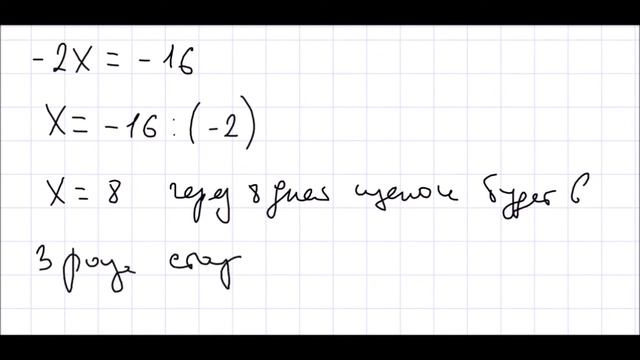 -2x = -16
x = -16 : (-2)
x = 8 через 8 дней щенок будет в
3 раза